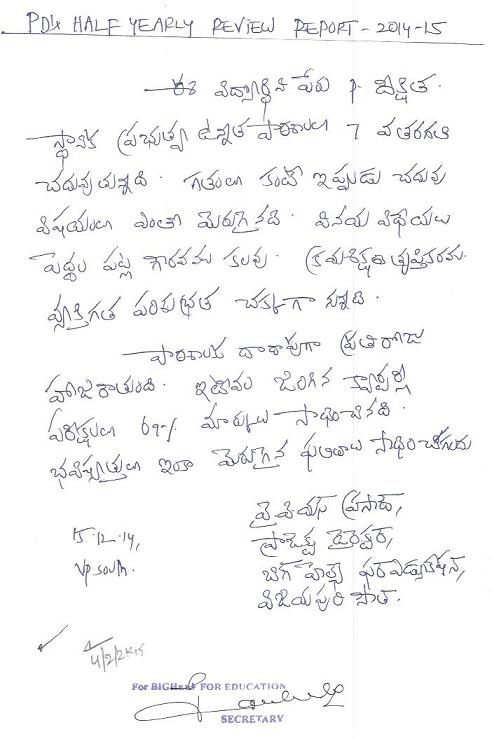 PDY HALF YEARLY REVIEW REPORT - 2014-15
ఈ విద్యార్థిని పేరు p. దీక్షిత.
స్థానిక ప్రభుత్వ ఉన్నత పాఠశాలలో 7 వతరగతి
చదువుతున్నది. గతంలో కంటే ఇప్పుడు చదువు
విషయంలో ఎంతో మెరుగైనది. వినయ విధేయలు
పెద్దల పట్ల గౌరవము కలవు. క్రమశిక్షణ తృప్తికరము.
వ్యక్తిగత పరిశుభ్రత చక్కగా వున్నది.
పాఠశాలకు దాదాపుగా ప్రతిరోజు
హాజరౌతుంది. ఇటీవల జరిగిన క్వార్టర్లీ
పరీక్షలలో 69% మార్కులు సాధించినది.
భవిష్యత్తులో ఇంకా మెరుగైన ఫలితాలు సాధించగలదు
వై. పి. యస్ ప్రసాద్,
ప్రాజెక్టు డైరెక్టర్,
15.12.14,
బిగ్ హెల్ప్ ఫర్ ఎడ్యుకేషన్,
VP South.
విజయపురి సౌత్.
4/2/2K15
For BIGHELP FOR EDUCATION
SECRETARY